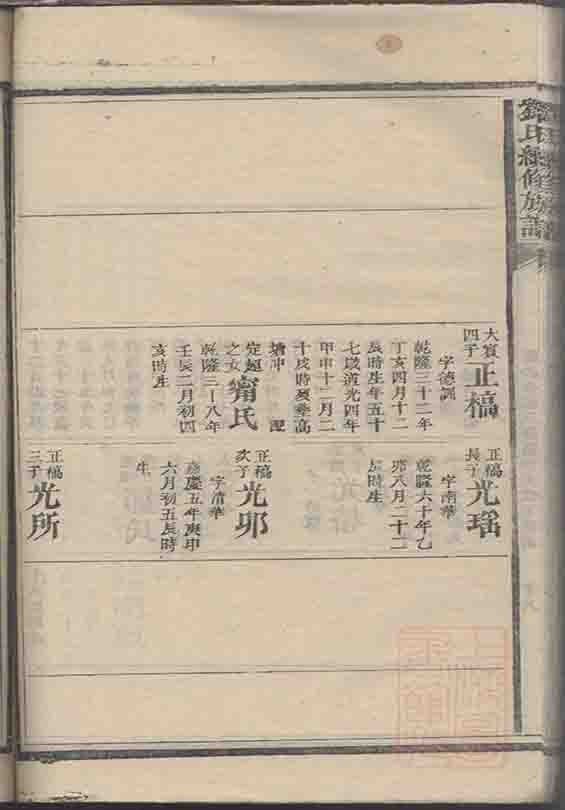 氏續修族譜
大賓
四子
正槁
字德訓
乾隆三十二年
丁亥四月十二
辰時生年五十
七歲道光四年
甲申十二月二
十戌時歿葬高
塘冲　配
定超
之女
甯氏
乾隆三十八年
壬辰二月初四
亥時生
正槁
長子
光瑤
字南華
乾隆六十年乙
卯八月二十二
辰時生
正槁
次子
光邵
字清華
嘉慶五年庚申
六月初五辰時
生
正槁
三子
光所